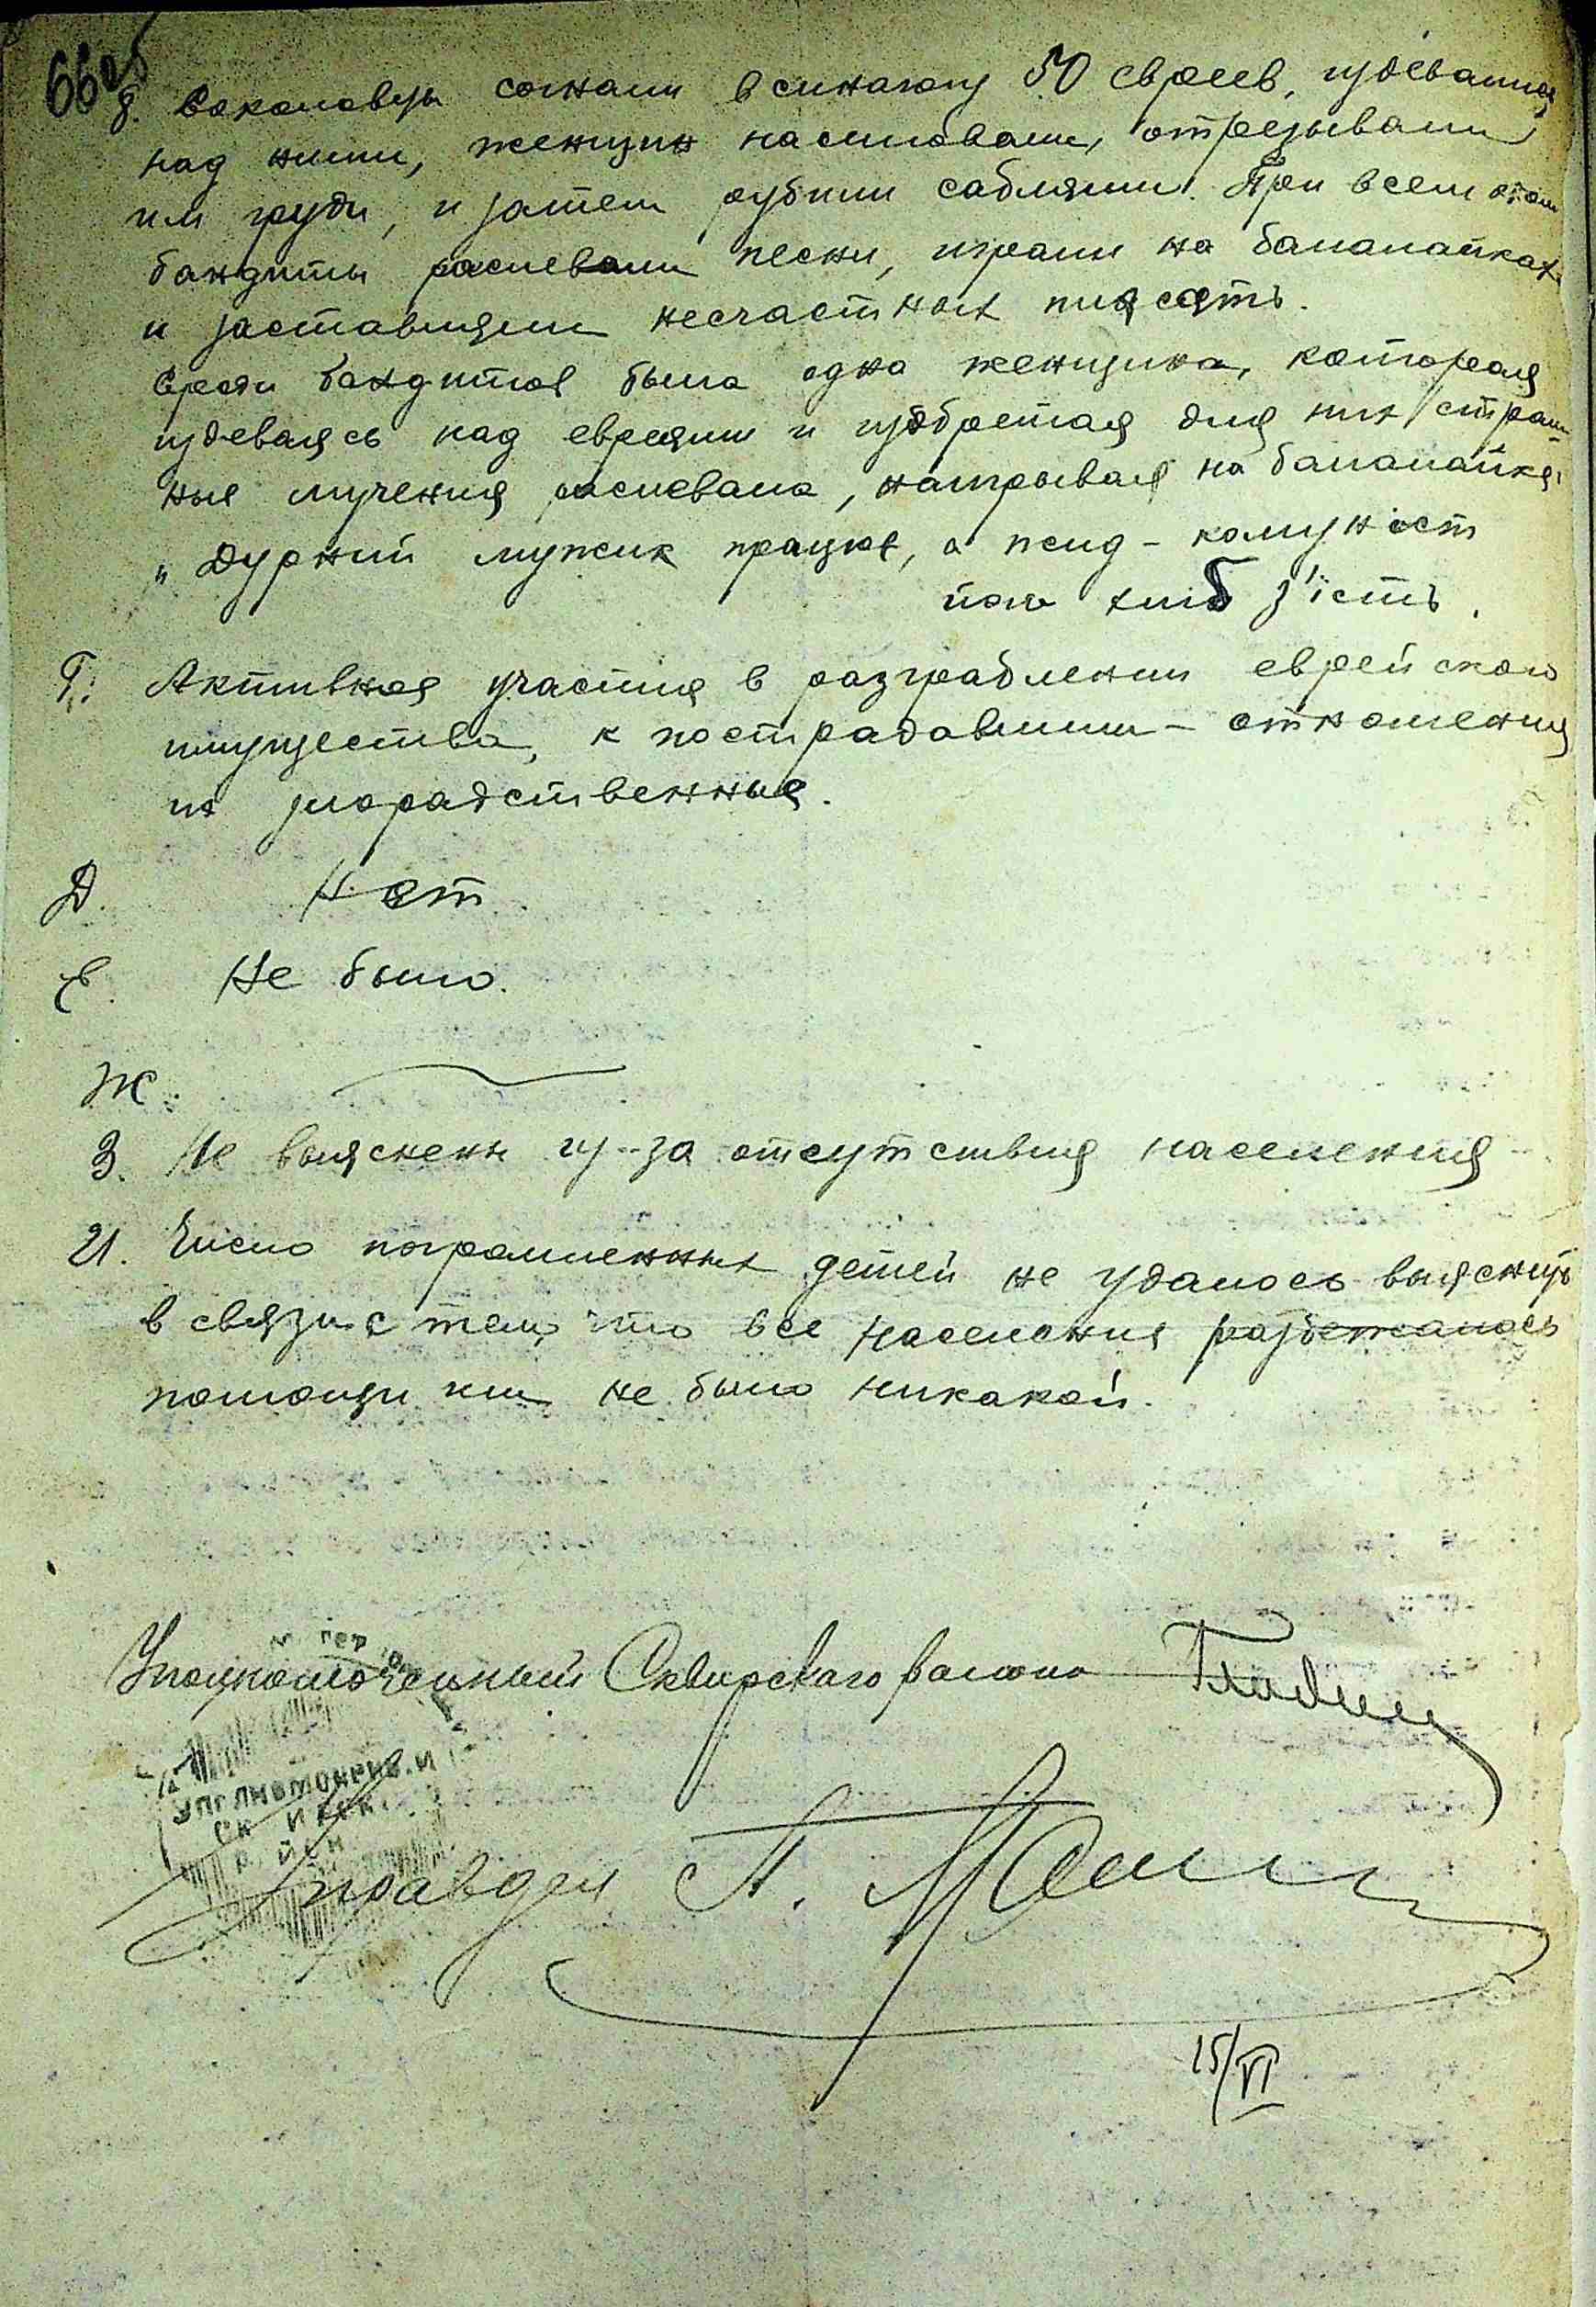 66 об
8. Соколовцы согнали в синагогу 50 евреев, издевались
над ними, женщин насиловали, отрезывали
им груди, и затем рубили саблями. При всем этом
бандиты распевали песни, играли на балалайках
и заставляли несчастных плясать.
Среди бандитов была одна женщина, которая
издеваясь над евреями и изобретая для них страш-
ные мучения распевала, наигрывая на балалайке:
"Дурний мужик працює, а жид - комуніст
його хліб з'їсть.
Г. Активное участие в разграблении еврейского
имущества, к пострадавшим - отношения
их злорадственные.
Д. Нет
Е. Не было.
Ж.
З. Не выяснены из-за отсутствия населения
И. Число погромленных детей не удалось выяснить
в связи с тем, что все население разъежалось
помощи им не было никакой.
Уполномоченный Сквирского района
УПОЛНОМОЧЕНН
Управдел П.
15/VI